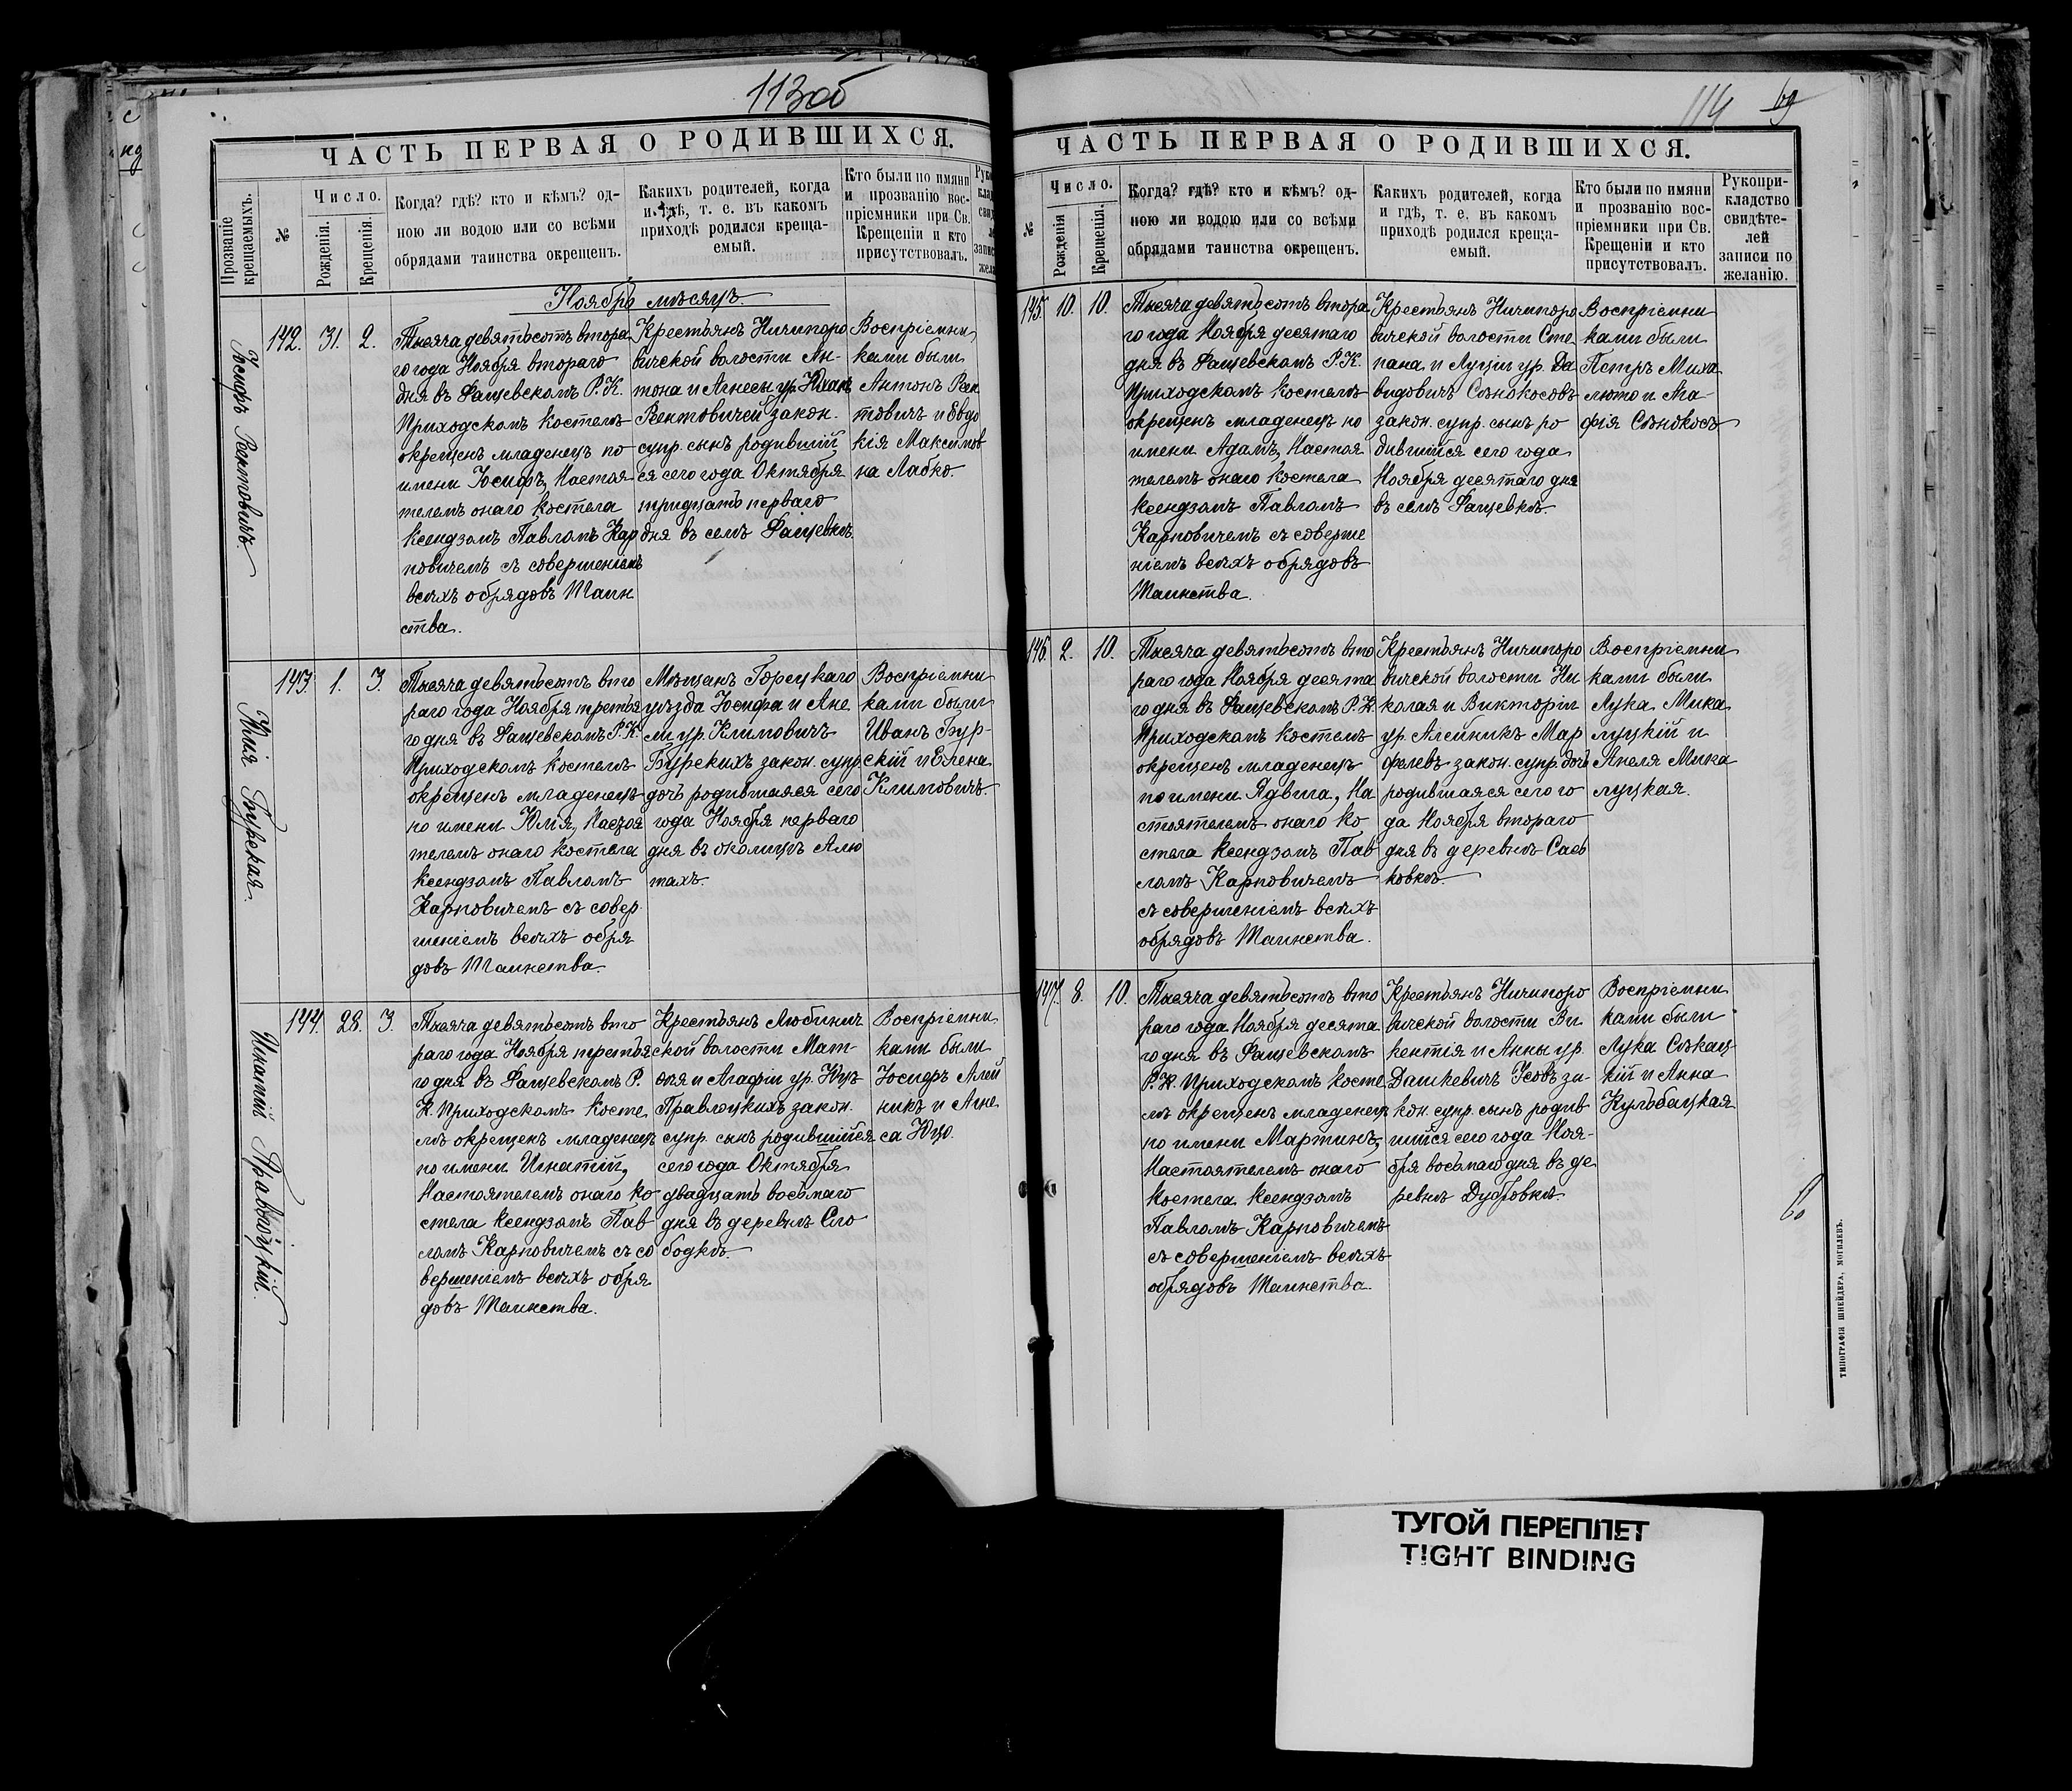 113об
ЧАСТЬ ПЕРВАЯ О РОДИВШИХСЯ.
Прозваніе крещаемыхъ.
№
Число.
Рожденія.
Крещенія.
Когда? гдѣ? кто и кѣмъ? од-
ною ли водою или со всѣми
обрядами таинства окрещенъ.
Какихъ родителей, когда
и гдѣ, т. е. въ какомъ
приходѣ родился креща-
емый.
Кто были по имяни
и прозванію вос-
пріемники при Св.
Крещеніи и кто
присутствовалъ.
Ноябрь мѣсяцъ.
Іосифъ Рентовичъ.
142. 31. 2.
Тысяча девятьсотъ второ
го года Ноября втораго
дня въ Фащевскомъ Р. К.
Приходскомъ костелѣ
окрещенъ младенецъ по
имени Іосифъ, Настоя
телемъ онаго костела
Ксендзомъ Павломъ Кар
повичемъ съ совершеніемъ
всѣхъ обрядовъ Таин
ства.
Крестьянъ Ничипоро
вичской волости Ан-
тона и Агнесы ур.
Рентовичей закон.
супр. сынъ родившій
ся сего года Октября
тридцать перваго
дня въ селѣ Фащевкѣ.
Воспріемни
ками были
Антонъ Рен
товичъ и Евдо
кія Максимов
на Лабко.
Юлія Бурская.
143. 1. 3.
Тысяча девятьсотъ вто
раго года Ноября третья
го дня въ Фащевскомъ Р. К.
Приходскомъ костелѣ
окрещенъ младенецъ
по имени Юлія, Настоя
телемъ онаго костела
Ксендзомъ Павломъ
Карповичемъ съ совер
шеніемъ всѣхъ обря
довъ Таинства.
Мѣщанъ Горецкаго
уѣзда Іосифа и Ане
ли ур. Климовичъ
Бурскихъ закон. супр.
дочь родившаяся сего
года Ноября перваго
дня въ околицѣ Алю
тахъ.
Воспріемни
ками были
Иванъ Бур-
скій и Елена
Климовичъ.
Игнатій Правлоцкій.
144. 28. 3.
Тысяча девятьсотъ вто
раго года Ноября третья
го дня въ Фащевскомъ Р.
К. Приходскомъ косте
лѣ окрещенъ младенецъ
по имени Игнатій,
Настоятелемъ онаго ко
стела Ксендзомъ Пав
ломъ Карповичемъ съ со
вершеніемъ всѣхъ обря
довъ Таинства.
Крестьянъ Любинич
ской волости Мат-
ѳея и Агафіи ур.
Правлоцкихъ закон.
супр. сынъ родившійся
сего года Октября
двадцать восьмаго
дня въ деревнѣ Сло
бодкѣ.
Воспріемни
ками были
Іосифъ Алей
никъ и Агне
са
114
ЧАСТЬ ПЕРВАЯ О РОДИВШИХСЯ.
№
Число.
Рожденія
Крещенія.
Когда? гдѣ? кто и кѣмъ? од-
ною ли водою или со всѣми
обрядами таинства окрещенъ.
Какихъ родителей, когда
и гдѣ, т. е. въ какомъ
приходѣ родился креща-
емый.
Кто были по имяни
и прозванію вос-
пріемники при Св.
Крещеніи и кто
присутствовалъ.
Рукопри-
кладство
свидѣте-
лей
записи по
желанію.
145. 10. 10.
Тысяча девятьсотъ второ
го года Ноября десятаго
дня въ Фащевскомъ Р. К.
Приходскомъ костелѣ
окрещенъ младенецъ по
имени Адамъ, Настоя
телемъ онаго костела
Ксендзомъ Павломъ
Карповичемъ съ соверше
ніемъ всѣхъ обрядовъ
Таинства.
Крестьянъ Ничипоро
вичской волости Сте
пана и Луціи ур. Да
видовичъ Сѣнокосовъ
закон. супр. сынъ ро
дившійся сего года
Ноября десятаго дня
въ селѣ Фащевкѣ.
Воспріемни
ками были
Петръ Миха
люто и Ма-
фія Сѣнокосъ
146. 2. 10.
Тысяча девятьсотъ вто
раго года Ноября десята
го дня въ Фащевскомъ Р. К.
Приходскомъ костелѣ
окрещенъ младенецъ
по имени Ядвига, На
стоятелемъ онаго ко
стела Ксендзомъ Пав
ломъ Карповичемъ
съ совершеніемъ всѣхъ
обрядовъ Таинства.
Крестьянъ Ничипоро
вичской волости Ни
колая и Викторіи
ур. Алейникъ Мар
фелевъ закон. супр. дочь
родившаяся сего го
да Ноября втораго
дня въ деревнѣ Сав
ковкѣ.
Воспріемни
ками были
Лука Мика
луцкій и
Анеля Мика
луцкая.
147. 8. 10.
Тысяча девятьсотъ вто
раго года Ноября десята
го дня въ Фащевскомъ
Р. К. Приходскомъ косте
лѣ окрещенъ младенецъ
по имени Мартинъ,
Настоятелемъ онаго
костела Ксендзомъ
Павломъ Карповичемъ
съ совершеніемъ всѣхъ
обрядовъ Таинства.
Крестьянъ Ничипоро
вичской волости Ви
кентія и Анны ур.
Дашкевичъ Усовъ за-
кон. супр. сынъ родив
шійся сего года Ноя-
бря восьмаго дня въ де
ревнѣ Дубровкѣ.
Воспріемни
ками были
Лука
кій и Анна
Кульбацкая
ТИПОГРАФІЯ ШНЕЙДЕРА, МОГИЛЕВЪ.
ТУГОЙ ПЕРЕПЛЕТ
TIGHT BINDING